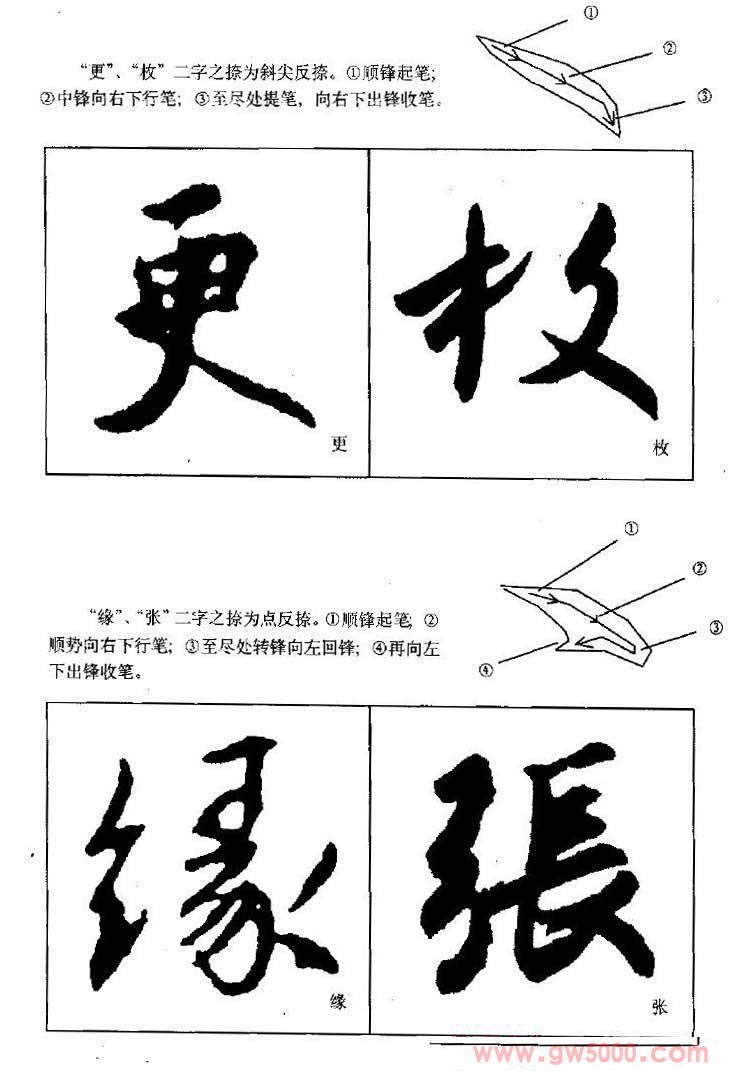 ①
“更”、“枚”二字之捺为斜尖反捺。①顺锋起笔；
②
②中锋向右下行笔；③至尽处提笔，向右下出锋收笔。
③
更 枚
更 枚
①
②
“缘”、“张”二字之捺为点反捺。①顺锋起笔；②
③
顺势向右下行笔；③至尽处转锋向左回锋；④再向左
④
下出锋收笔。
缘 張
缘 张
www.gw5000.com